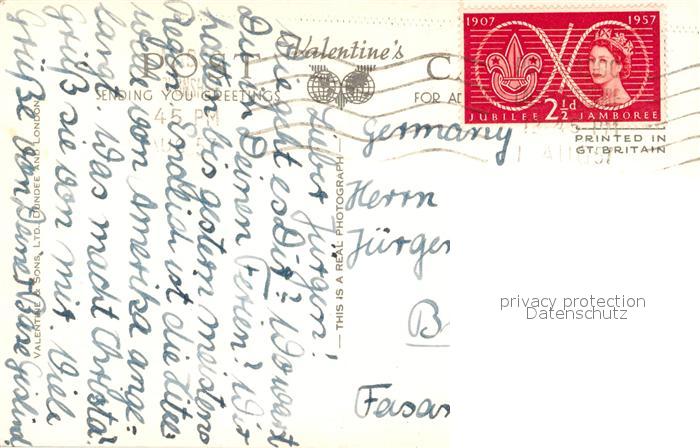 1907 1957
2½d
JUBILEE JAMBOREE
POST
Valentine's
SENDING YOU GREETINGS
FOR
PRINTED IN
GT. BRITAIN
45 PM
VALENTINE & SONS, LTD. DUNDEE AND LONDON
THIS IS A REAL PHOTOGRAPH
Lieber Jürgen!
Wie geht es Dir? Wo warst
Du in Deinen Ferien? Wir
hatten bis gestern meistens
Regen. Endlich ist die
welle von Amerika ange-
langt. Was macht Christa?
Grüß sie von mir. Viele
Grüße von Deiner
Germany
Herrn
Jürgen
B
Fasa
privacy protection
Datenschutz